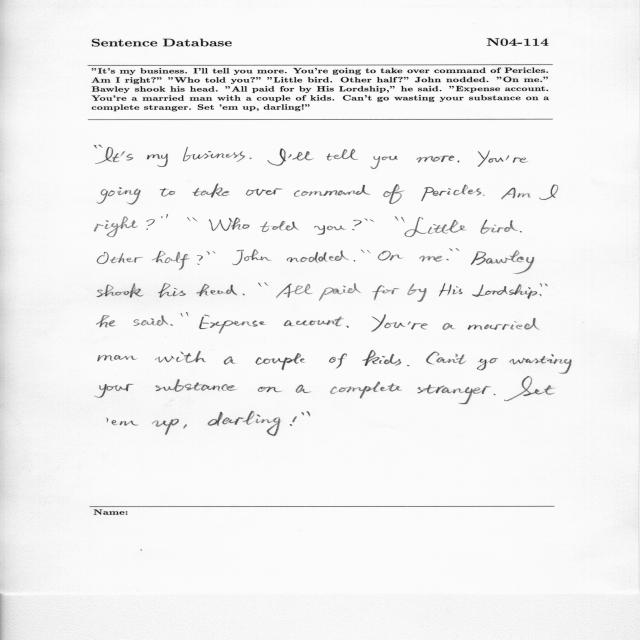 Sentence Database N04-114
"It's my business. I'll tell you more. You're going to take over command of Pericles.
Am I right?" "Who told you?" "Little bird. Other half?" John nodded. "On me."
Bawley shook his head. "All paid for by His Lordship," he said. "Expense account.
You're a married man with a couple of kids. Can't go wasting your substance on a
complete stranger. Set 'em up, darling!"
"It's my business. I'll tell you more. You're
going to take over command of Pericles. Am I
right?" "Who told you?" "Little bird.
Other half?" John nodded. "On me." Bawley
shook his head. "All paid for by His Lordship."
he said. "Expense account. You're a married
man with a couple of kids. Can't go wasting
your substance on a complete stranger. Set
'em up, darling!"
Name: